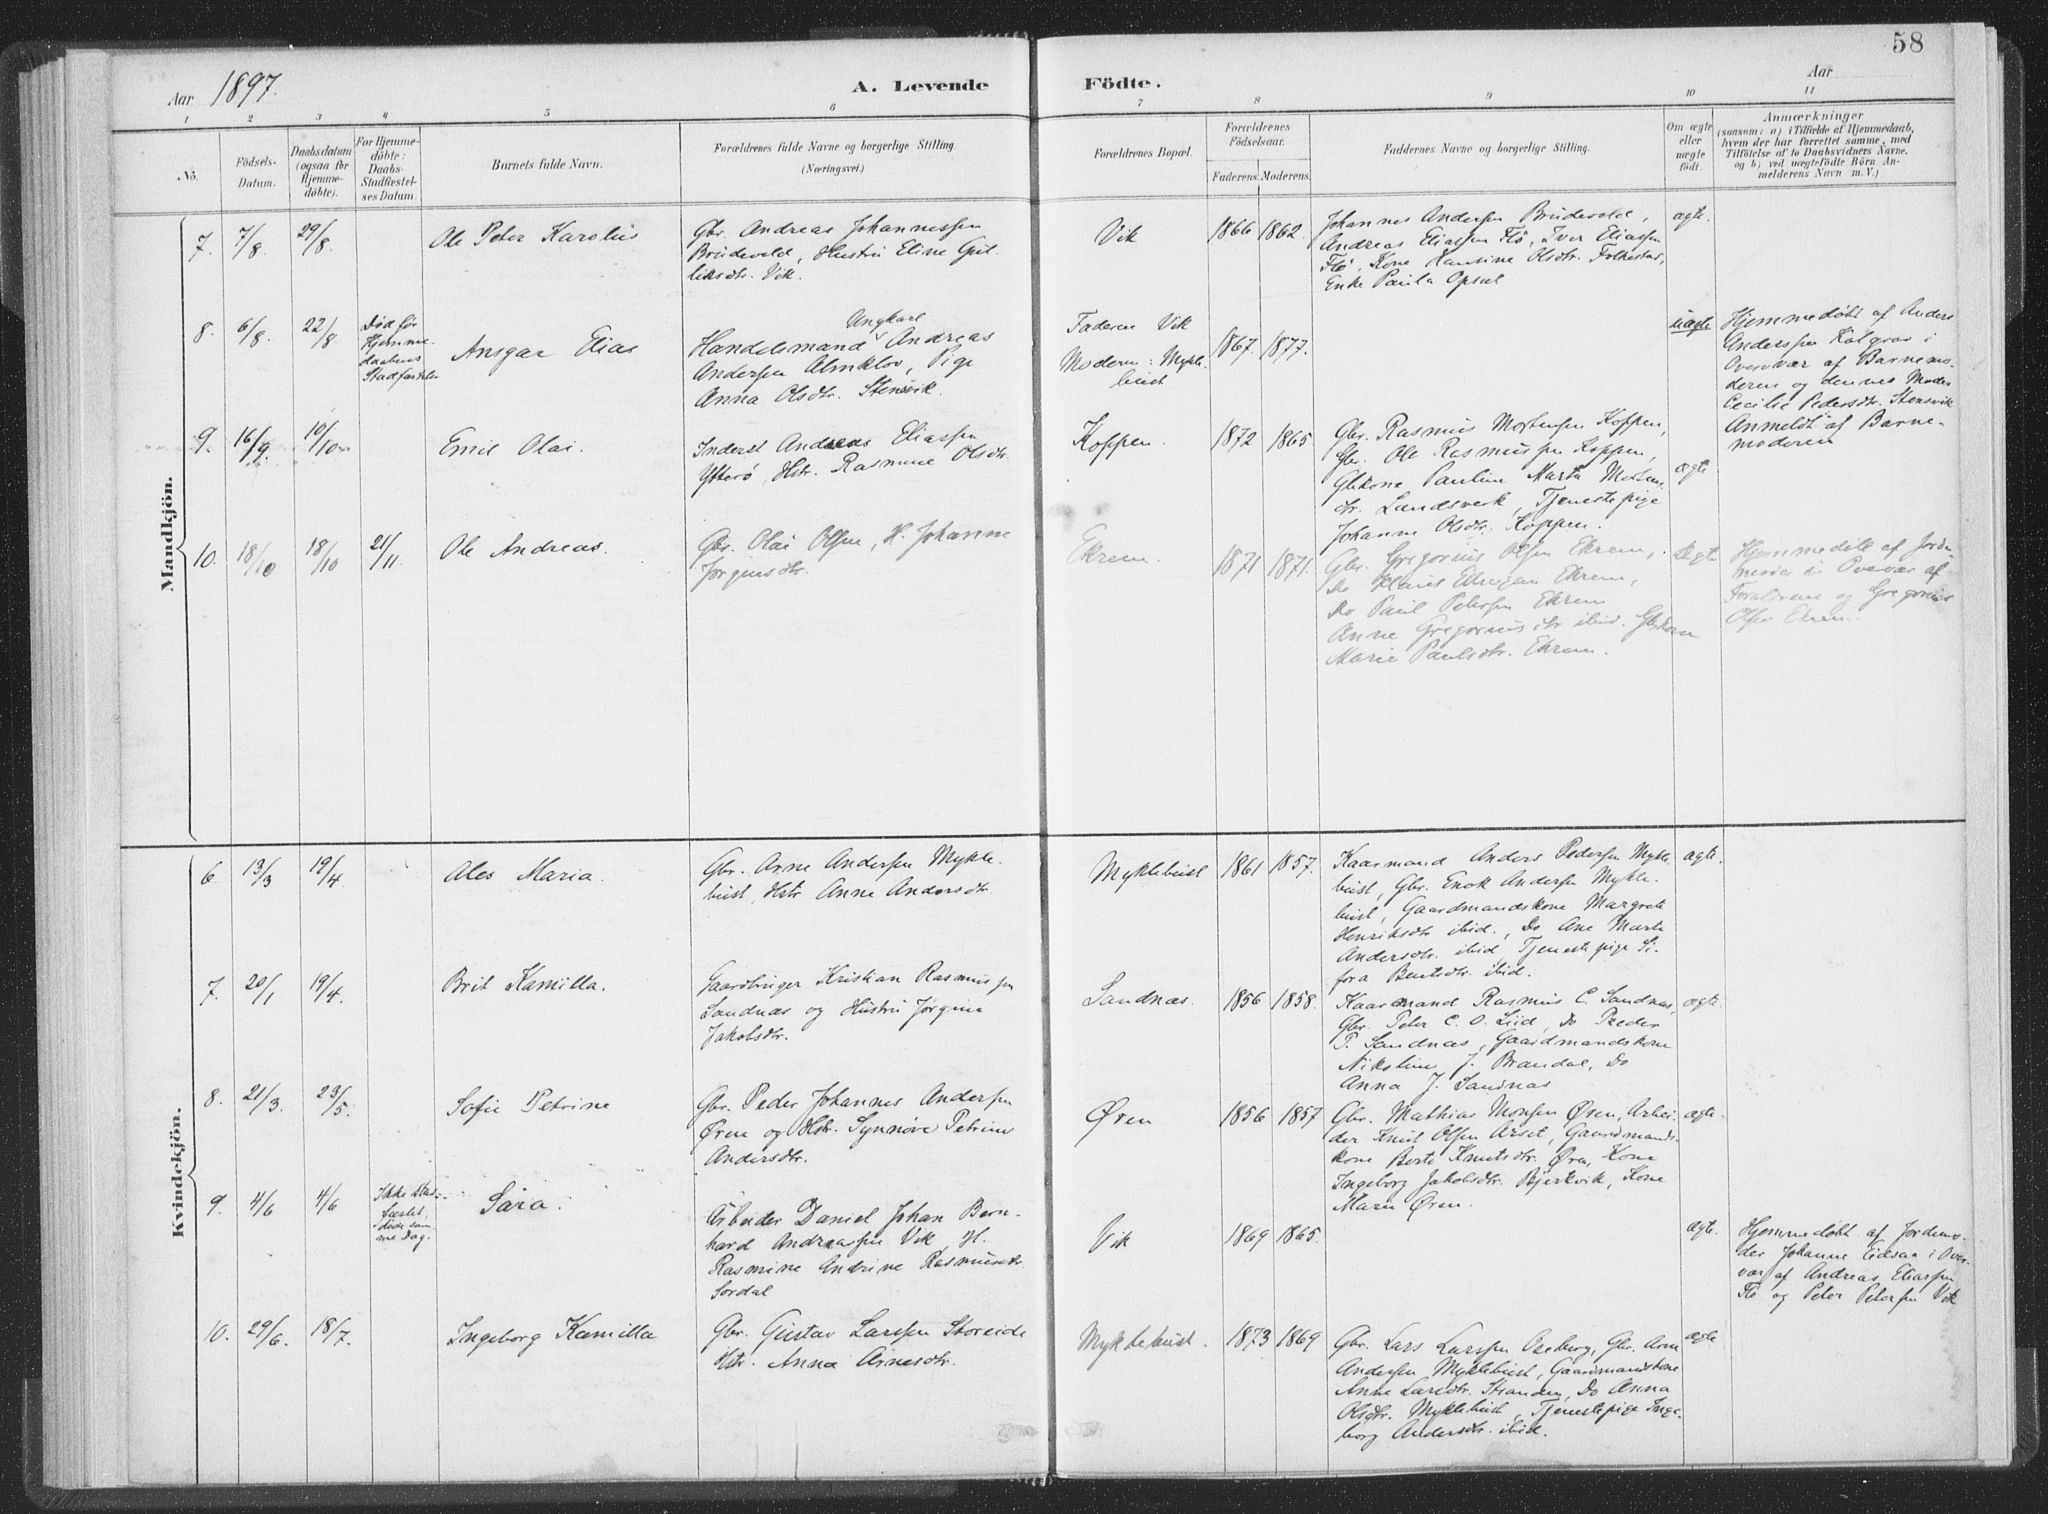 58
Aar 1897.
A. Levende
Födte.
Aar
1 2 3 4 5 6 7 8 9 10 11
No.
Födsels-
Datum.
Daabsdatum
(ogsaa for
Hjemme-
döbte).
For Hjemme-
döbte:
Daabs-
Stadfæstel-
ses Datum.
Barnets fulde Navn.
Forældrenes fulde Navne og borgerlige Stilling
(Næringsvei.)
Forældrenes Bopæl.
Forældrenes
Födselsaar.
Faderens. Moderens.
Faddernes Navne og borgerlige Stilling.
Om ægte
eller
uægte
födt.
Anmærkninger
(saasom: a) i Tilfælde af Hjemmedaab,
hvem der har forrettet samme, med
Tilföielse af to Daabsvidners Navne.
og b) ved uægtefödte Börn An-
melderens Navn m. V.)
Mandkjön.
7. 7/8 29/8 Ole Peter Karolus
Gbr. Andreas Johannessen
Brudevold, Hustru Eline Gul-
liksdtr. Vik.
Vik 1866 1862.
Johannes Andersen Brudevold,
Andreas Eliassen Flö, Iver Eliassen
Flö, Kone Hansine Olsdtr. Folkestad,
Enke Paula Opsal
ægte.
8. 6/8. 22/8
Död før
Hjemme-
daabens
Stadfæstelse
Ansgar Elias
Ungkarl
Handelsmand Andreas
Andersen Almklov, Pige
Anna Olsdtr. Stensvik.
Faderen Vik
Moderen: Mykle-
bust
1867. 1877.
uægte
Hjemmedöbt af Anders
Anderssen Kolgrov i
Overvær af Barnemo-
deren og dennes Moder
Cecilie Pedersdtr. Stensvik
Anmeldt af Barne-
moderen
9. 16/9. 10/10 Emil Olai.
Inderst Andreas Eliassen
Ytterö, Hstr. Rasmine Olsdtr.
Koppen. 1872 1865
Gbr. Rasmus Mortensen Koppen,
Gbr. Ole Rasmussen Koppen,
Gbrkone Pauline Marta Mons-
dtr. Landsverk, Tjenestepige
Johanne Olsdtr. Koppen.
ægte
10. 18/10 18/10 21/11 Ole Andreas.
Gbr. Olai Olsen, H. Johanne
Jørgensdtr.
Ekrem. 1871 1871.
Gbr. Gregorius Olsen Ekrem,
Do Ekrem,
Do Paul Petersen Ekrem
Anne Gregoriusdtr ibid. Gbrkone
Marie Paulsdtr. Ekrem.
ægte
Hjemmedöbt af Jorde-
moder i Overvær af
Forældrene og Gregorius
Olsen Ekrem.
Kvindekjön.
6. 13/3 19/4 Ales Maria.
Gbr. Arne Andersen Mykle-
bust, Hstr Anne Andersdtr.
Myklebust 1861 1857.
Kaarmand Anders Pedersen Mykle-
bust, Gbr. Enok Andersen Mykle-
bust, Gaardmandskone Margrete
Henriksdtr ibid., Do Ane Marte
Andersdtr ibid, Tjenestepige Si-
fora Bentsdtr. ibid.
ægte.
7. 20/1 19/4. Brit Kamilla.
Gaardbruger Kristian Rasmussen
Sandnæs og Hustru Jørgine
Jakobsdtr.
Sandnæs. 1856 1858.
Kaarmand Rasmus C. Sandnæs,
Gbr. Peter C. O. Liid, Do Peder
P. Sandnæs, Gaardmandskone
Nikoline J. Brandal, Do
Anna J. Sandnæs
ægte.
8. 21/3. 23/5. Sofie Petrine
Gbr. Peder Johannes Andersen
Øren og Hstr. Synnöve Petrine
Andersdtr.
Øren 1856 1857
Gbr. Mathias Monsen Øren, Arbei-
der Knut Olsen Arset, Gaardmands-
kone Berte Knutsdtr. Øren, Kone
Ingeborg Jakobsdtr. Bjerkvik, Kone
Maren Øren.
ægte.
9. 4/6 4/6
Ikke stad-
fæstet
döde sam-
me Dag.
Sara.
Arbeider Daniel Johan Bern-
hard Andreassen Vik H.
Rasmine Andrine Rasmusdtr.
Sördal
Vik 1869 1865.
ægte.
Hjemmedöbt af Jordemo-
der Johanne Eidsaa i Over-
vær af Andreas Eliassen
Flö og Peter Petersen Vik
10. 29/6. 18/7. Ingeborg Kamilla
Gbr. Gustav Larssen Storeide
Hstr. Anna Arnesdtr.
Myklebust. 1873 1869
Gbr. Lars Larssen Oseberg, Gbr. Arne
Andersen Myklebust, Gaardmandskone
Anne Larsdtr. Stranden, Do Anna
Olsdtr. Myklebust, Tjenestepige Inge-
borg Andersdtr. ibid.
ægte